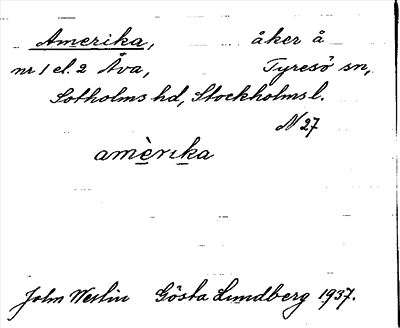 Amerika, åker å
nr 1 el. 2 Åva, Tyresö sn,
Sotholms hd, Stockholms l.
N 27
amèrika
John Westin Gösta Lundberg 1937.